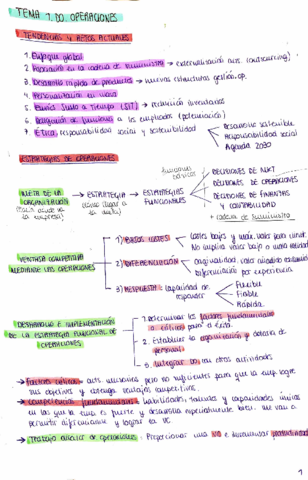 TEMA 1. DO. OPERACIONES
TENDENCIAS Y RETOS ACTUALES
1. Enfoque global
2. en la cadena de suministro → externalización acts (outsourcing).
3. Desarrollo rápido de productos → nuevas estructuras gestión op.
4. Personalización en masa
5. Envío Justo a Tiempo (JIT) → reducción inventarios
6. a los empleados
7. Ética, responsabilidad social y sostenibilidad
Desarrollo sostenible
Responsabilidad social
Agenda 2030
ESTRATEGIAS DE OPERACIONES
META DE LA ORGANIZACIÓN → ESTRATEGIA → ESTRATEGIAS FUNCIONALES
DECISIONES DE MKT
DECISIONES DE OPERACIONES
DECISIONES DE FINANZAS Y CONTABILIDAD
+ cadena de suministro
VENTAJA COMPETITIVA MEDIANTE LAS OPERACIONES
1) BAJOS COSTES
No implica valor bajo o mala calidad
2) DIFERENCIACIÓN
Diferenciación por experiencia
3) RESPUESTA: capacidad de responder
Flexible
Fiable
Rápida
DESARROLLO E IMPLEMENTACIÓN DE LA ESTRATEGIA FUNCIONAL DE OPERACIONES
1. Determinar los factores fundamentales o críticos para el éxito.
2. Establecer la organización y dotarla de personal.
3. Integrar con otras actividades
→ Factores críticos: acts necesarias, pero no suficientes para que la emp. logre
sus objetivos y obtenga ventajas competitivas.
→ Competencias fundamentales: habilidades, talentos y capacidades únicas
en las que la emp. es fuerte y desarrolla especialmente bien.
permite diferenciarse y lograr la VC
→ Trabajo director de operaciones: Proporcionar una VC e incrementar productividad
1